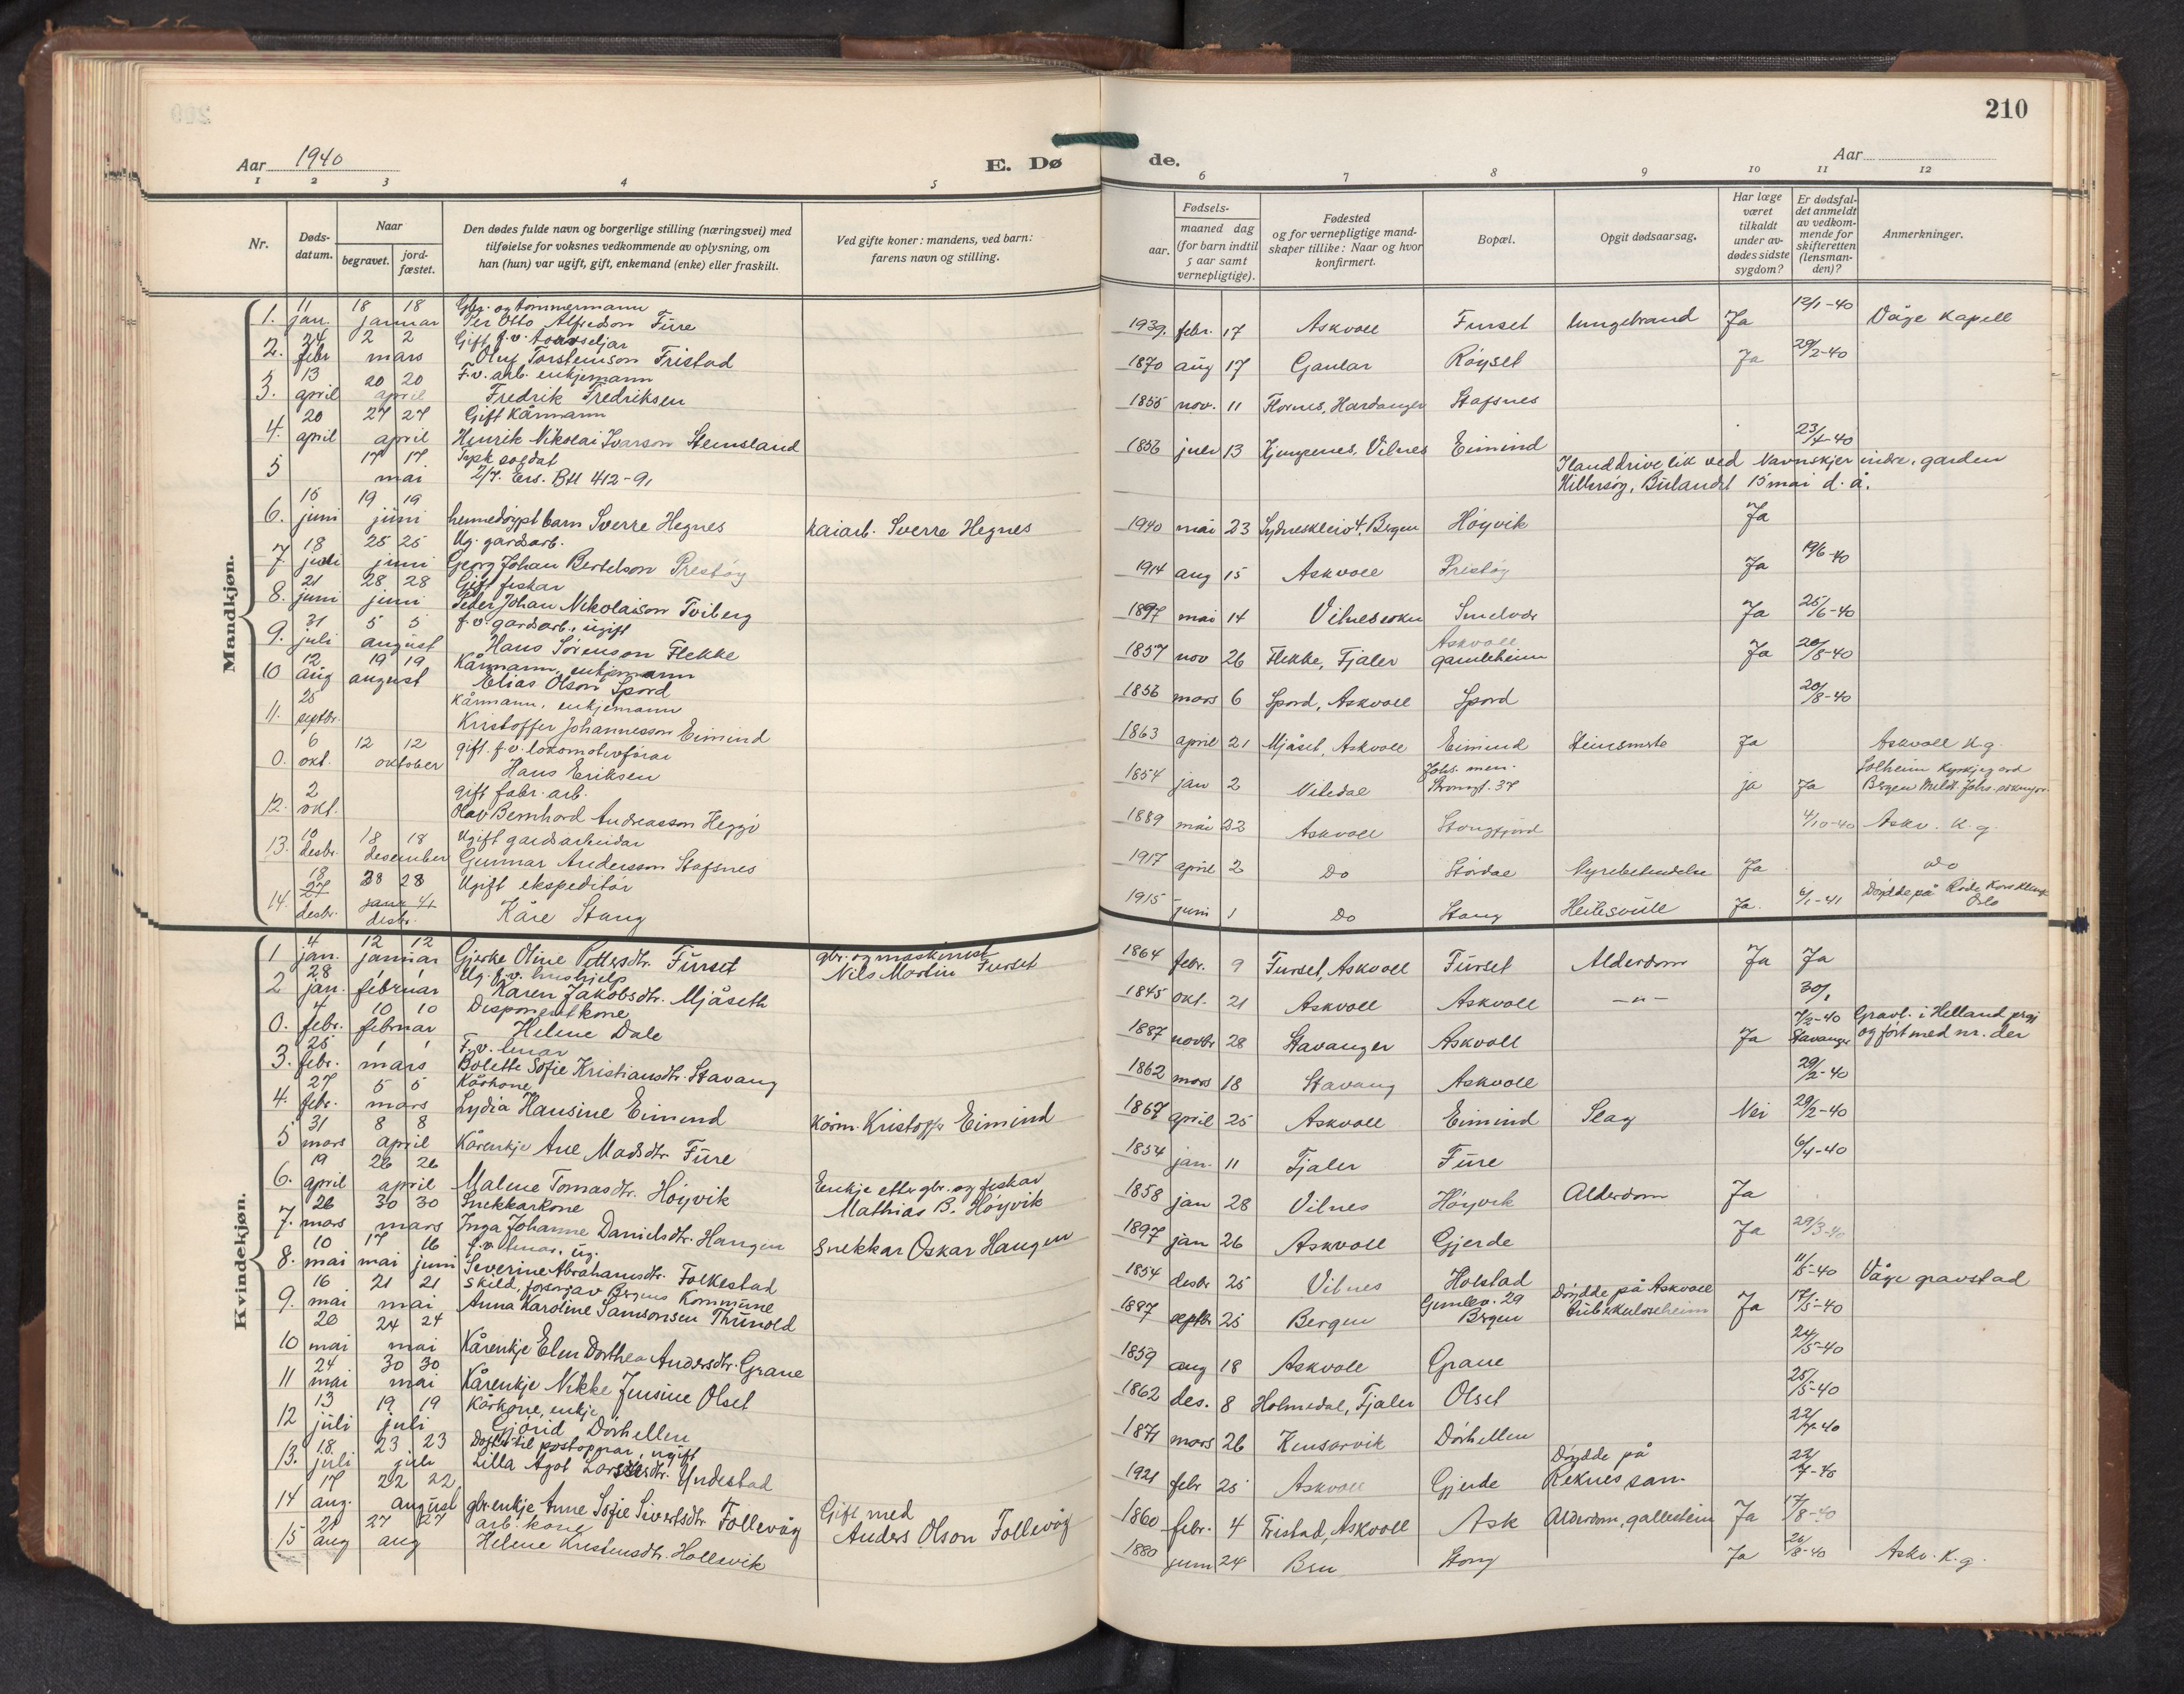 210
Aar 1940
E. Dø
de.
Aar
1 2 3 4 5 6 7 8 9 10 11 12
Nr.
Døds-
datum.
Naar
begravet.
jord-
fæstet.
Den dødes fulde navn og borgerlige stilling (næringsvei) med
tilføielse for voksnes vedkommende av oplysning, om
han (hun) var ugift, gift, enkemand (enke) eller fraskilt.
Ved gifte koner: mandens, ved barn:
farens navn og stilling.
Fødsels-
aar.
maaned dag
(for barn indtil
5 aar samt
vernepligtige).
Fødested
og for vernepligtige mand-
skaper tillike: Naar og hvor
konfirmert.
Bopæl.
Opgit dødsaarsag.
Har læge
været
tilkaldt
under av-
dødes sidste
sygdom?
Er dødsfal-
det anmeldt
av vedkom-
mende for
skifteretten
(lensman-
den)?
Anmerkninger.
Mandkjøn.
1. 11 jan. 18 18 januar Gbr. og tømmermann
Per Otto Alfredson Fure 1939. febr. 17 Askvoll Furset lungebrand Ja 12/1-40 Våge Kapell
2. 24 febr 2 2 mars Gift f.v.
Oluf Torsteinson Fristad 1870 aug 17 Gaular Røyset Ja 29/2-40
3. 13 april 20 20 april F.v. arb. enkjemann
Fredrik Fredriksen 1855 nov. 11 Hardanger Stafsnes
4. 20 april 27 27 april Gift Kårmann
Henrik Nikolai Ivarson Stensland 1856 juli 13 Vilnes Eimind 23/4-40
5 17 17 mai Tysk soldat
2/7. Ers. Btl 412-91 Ilanddrive lik ved Navnskjer indre, garden
Hillersøy, Bulandet 15 mai d. å.
6. 15 juni 19 19 juni heimedøypt barn Sverre Hegnes kaiarb. Sverre Hegnes 1940 mai 23 Sydneskleiv 4, Bergen Høyvik Ja
7. 18 juni 25 25 juni Ug. gardsarb.
Georg Johan Bertelson Prestøy 1914 aug 15 Askvoll Prestøy Ja 19/6-40
8. 21 juni 28 28 juni Gift fiskar
Peder Johan Nikolaison Tviberg 1897 mai 14 Vilnes sokn Ja 25/6-40
9. 31 juli 5 5 august f.v. gardsarb., ugift
Hans Sørenson Flekke 1857 nov 26 Flekke, Fjaler Askvoll
gamleheim Ja 20/8-40
10 12 aug 19 19 august Kårmann, enkjemann
Elias Olson Spord 1856 mars 6 Spord, Askvoll Spord 20/8-40
11. 25 septbr. Kårmann, enkjemann
Kristoffer Johannesson Eimind 1863 april 21 Mjåset, Askvoll Eimind Ja Askvoll K.g.
0. 6 okt. 12 12 oktober gift. f.v. lokomotivførar
Hans Eriksen 1854 jan 2 Johs. men.
Strømgt. 37 ja Ja Solheim Kyrkjegard
Bergen
12. 2 okt. gift fabr. arb.
Olav Bernhard Andreasson Heggø 1889 mai 22 Askvoll Stongfjord 4/10-40 Askv. K.g.
13. 10 desbr. 18 18 desember Ugift gardsarbeidar
Gunnar Andersson Stafsnes 1917 april 2 Do Stordal Nyrebetendelse Ja do
14. 18 27 desbr. 28 28 janr 41 desbr. Ugift ekspeditør
Kåre Stang 1915 juni 1 Do Stang Ja. 6/1-41 Døydde på Røde Kors Klinik
Oslo
Kvindekjøn.
1 4 jan. 12 12 januar Gjerke Oline Pettersdtr. Furset gbr. og maskinist
Nils Martin Furset 1864 febr. 9 Furset, Askvoll Furset Alderdom Ja Ja
2 28 jan. 1 1 februar Ug. f.v. hushjelp
Karen Jakobsdtr. Mjåseth 1845 okt. 21 Askvoll Askvoll -"- 30/1
0. 4 febr. 10 10 februar Disponentkone
Helene Dale 1887 novbr 28 Stavanger Askvoll Ja 7/2-40
Stavanger Gravl. i Helland prgj
og ført med nr. der
3. 25 febr. 1 1 mars F.v. lærar
Bolette Sofie Kristiansdtr. Stavang 1862 mars 18 Stavang Askvoll 29/2-40
4. 27 febr. 5 5 mars Kårkone
Lydia Hansine Eimind Kårm. Kristoffer Eimind 1867 april 25 Askvoll Eimind Slag Nei 29/2-40
5 31 mars 8 8 april Kårenkje Ane Madsdtr. Fure 1854 jan. 11 Fjaler Fure 6/4-40
6. 19 april 26 26 april Malene Tomasdtr. Høyvik Enkje etter gbr. og fiskar
Mathias B. Høyvik 1858 jan 28 Vilnes Høyvik Alderdom Ja
7. 26 mars 30 30 mars Snekkarkone
Inga Johanne Danielsdtr. Haugen Snekkar Oskar Haugen 1897 jan 26 Askvoll Gjerde Ja 29/3-40
8. 10 mai 17 mai 16 juni f.v. lærar, ug.
Severine Abrahamsdtr. Folkestad 1854 desbr 25 Vilnes Holstad 11/5-40 Våge gravstad
9. 16 mai 21 21 mai skild, forsørg av Bergens Kommune
Anna Karoline Samsonsen Thunold 1887 septbr 25 Bergen Gimlev. 29
Bergen Døydde på Askvoll
tuberkuloseheim Ja 17/5-40
10 20 mai 24 24 mai Kårenkje Elen Dorthea Andersdtr. Grane 1859 aug 18 Askvoll Grane 24/5-40
11 24 mai 30 30 mai Kårenkje Nikke Jensine Olset 1862 des. 8 Holmedal, Fjaler Olset 25/5-40
12 13 juli 19 19 juli Kårkone, enkje
Gjørid Dørhellen 1871 mars 26 Kinsarvik Dørhellen 22/7-40
13. 18. juli 23 23 juli Dotter til postopnar, ugift
Lilla Agot Larsdtr. Yndestad 1921 febr 25 Askvoll Gjerde Døydde på
Reknes san. 22/7-40
14 17 aug. 22 22 august gbr.enkje Anne Sofie Sivertsdtr Follevåg Gift med
Anders Olson Follevåg 1860 febr. 4 Fristad, Askvoll Ask Alderdom, gallestein Ja 17/8-40
15 21 aug 27 27 aug arb. kone
Helene Kristensdtr. Hollevik 1880 juni 24 Bru Stong Ja 26/8-40 Askv. K.g.